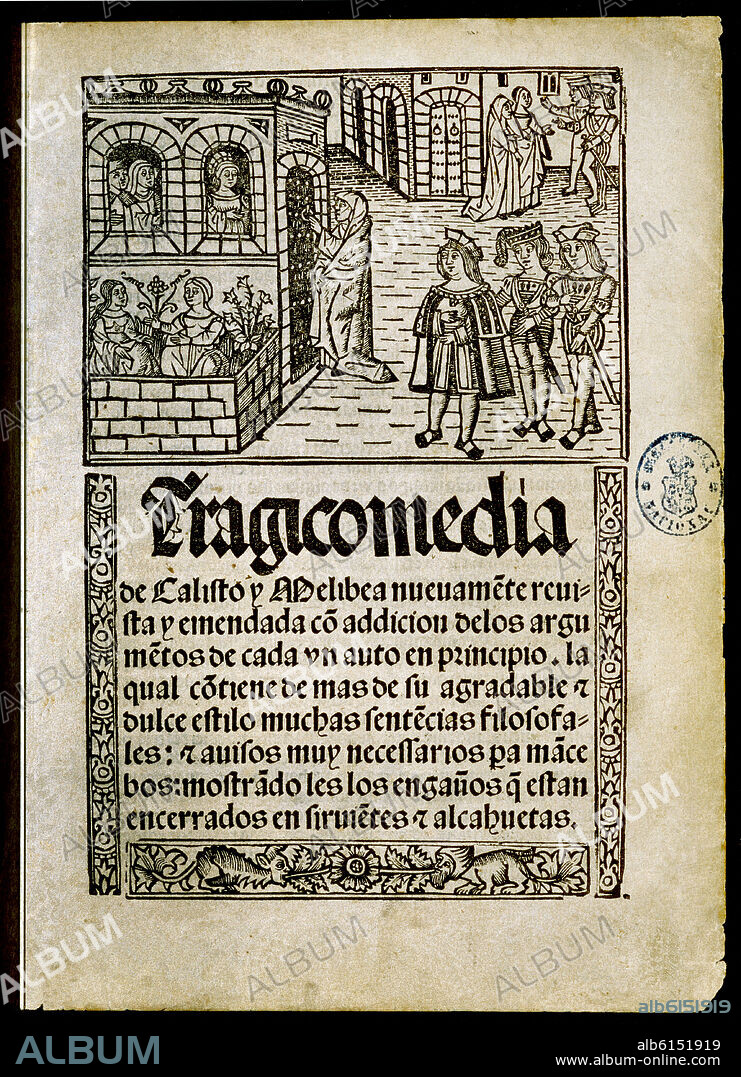 Tragicomedia
de Calisto y Melibea nueuamẽte reui-
sta y emendada cõ addicion delos argu
mẽtos de cada vn auto en principio. la
qual cõtiene de mas de su agradable ⁊
dulce estilo muchas sentẽcias filosofa-
les: ⁊ auisos muy necessarios pa mãce
bos: mostrãdo les los engaños q̃ estan
encerrados en siruiẽtes ⁊ alcahuetas.
NACIONAL
ALBUM
alb6151919
ALBUM
alb6151919
www.album-online.com